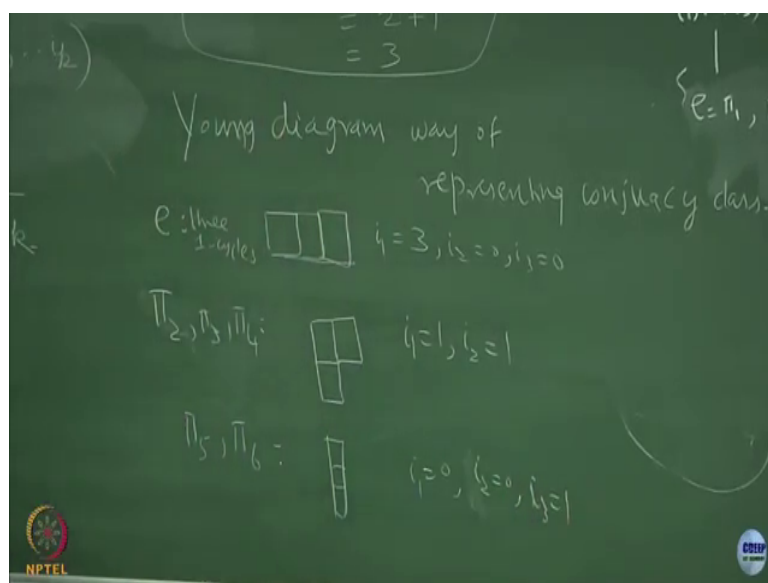 = 2+1
= 3
Young diagram way of
representing conjuacy class.
e: three
1-cycles
i₁=3, i₂=0, i₃=0
Π₂, Π₃, Π₄:
i₁=1, i₂=1
Π₅, Π₆:
i₁=0, i₂=0, i₃=1
k.
{e=Π₁,
NPTEL
CDEEP
IIT BOMBAY